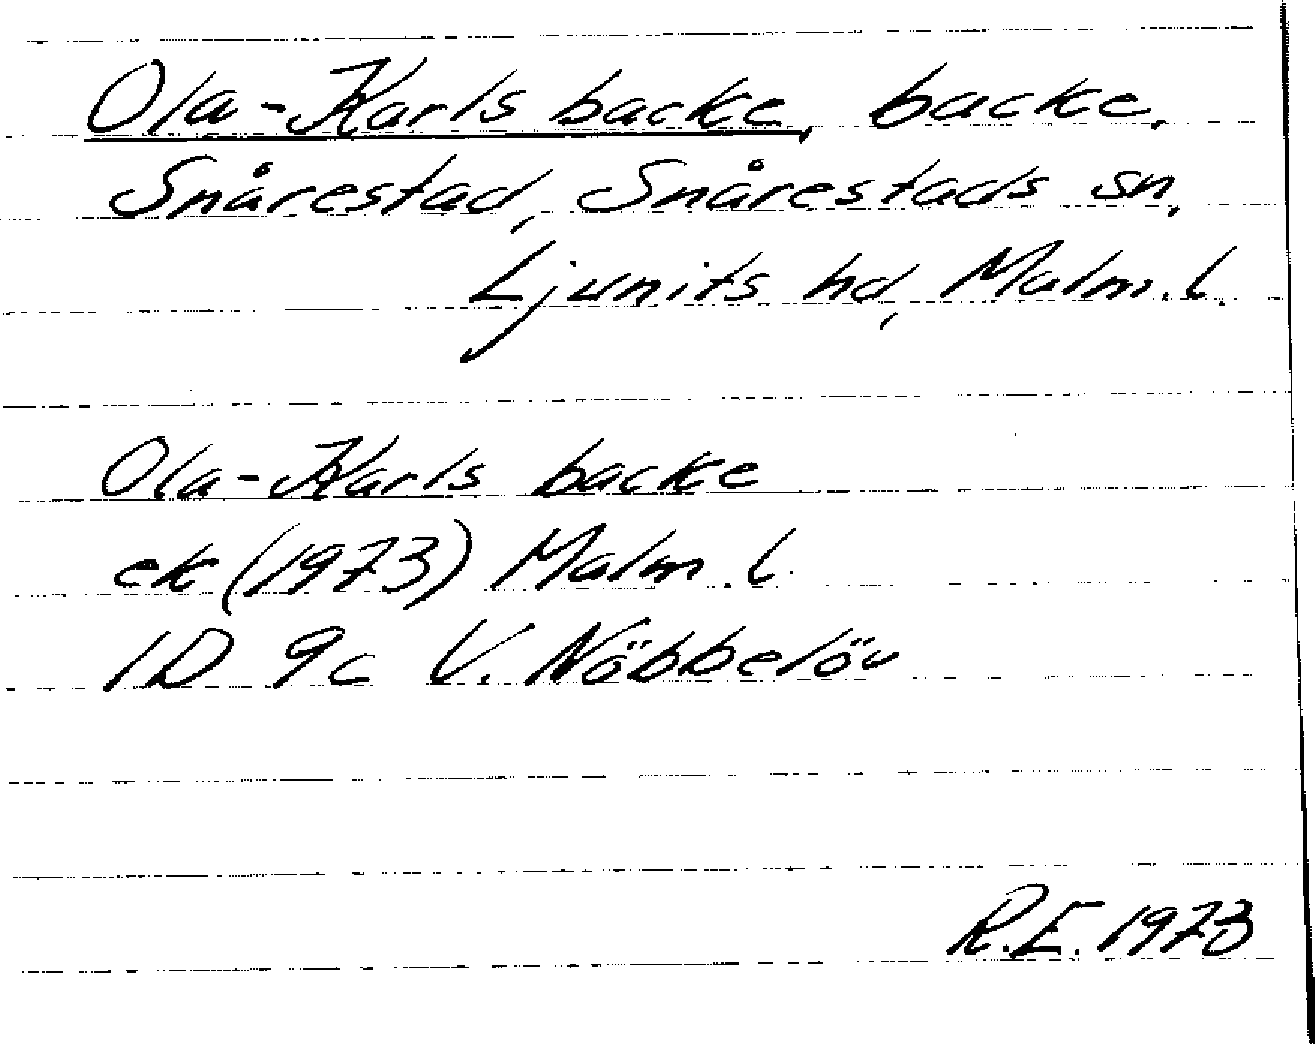 Ola-Karls backe, backe.
Snårestad, Snårestads sn,
Ljunits hd, Malm. l.
Ola-Karls backe
ek (1973) Malm. l.
1D 9c V. Nöbbelöv
R.E. 1973